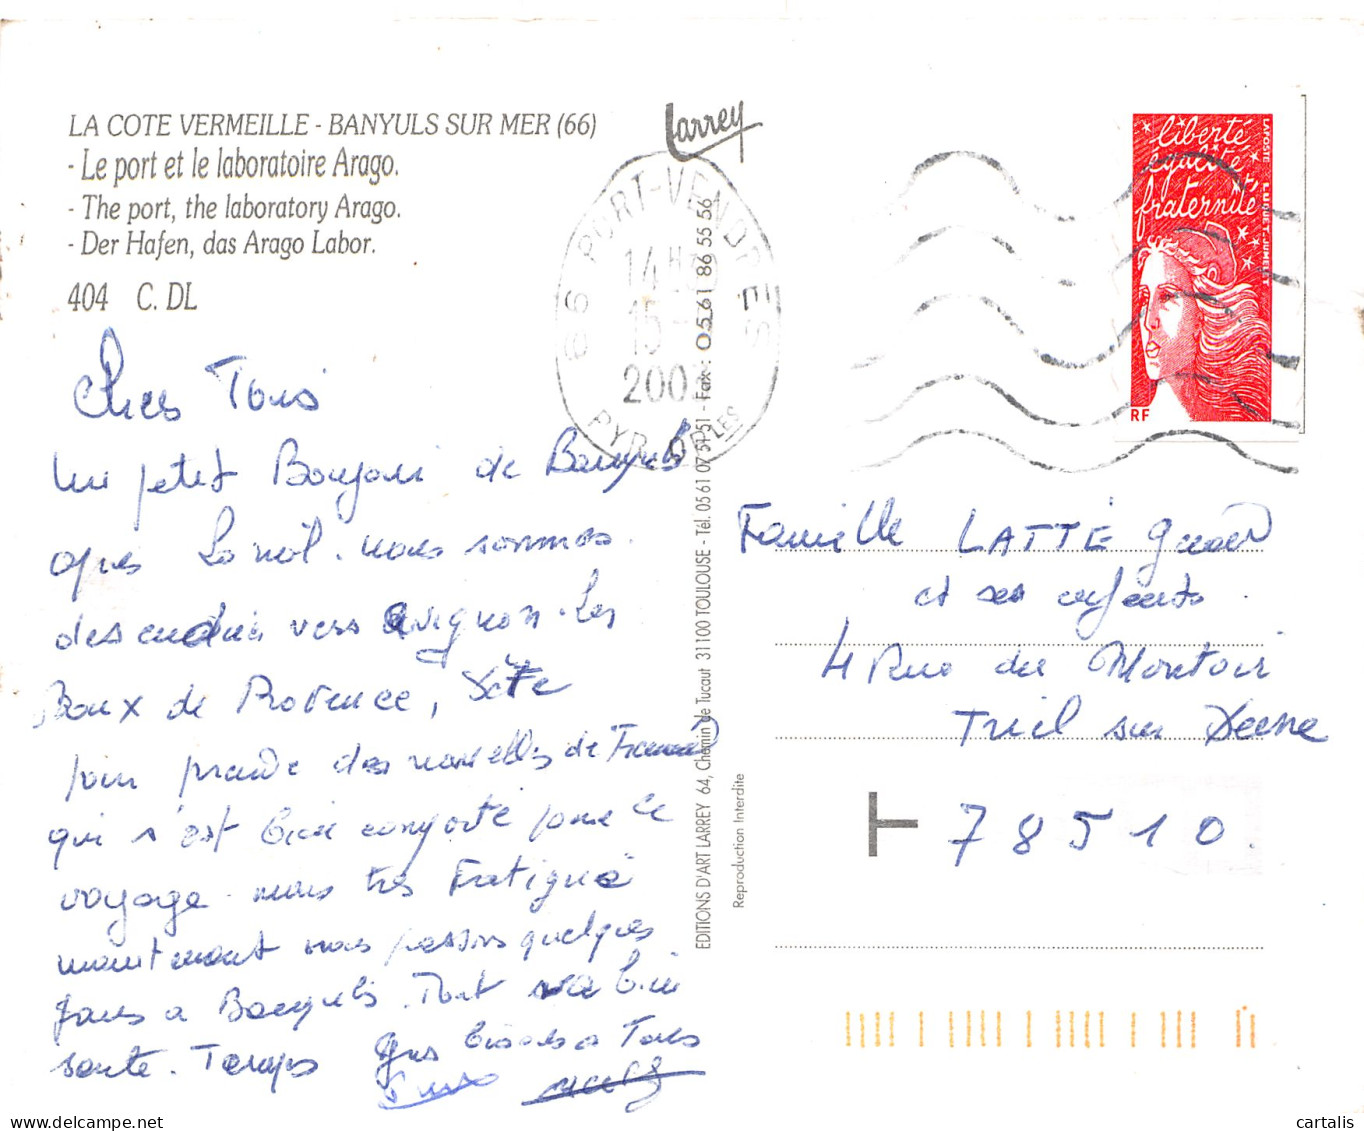 LA COTE VERMEILLE - BANYULS SUR MER (66)
- Le port et le laboratoire Arago.
- The port, the laboratory Arago.
- Der Hafen, das Arago Labor.
404 C. DL
Larrey
66 PORT-VENDRES
14H
15
200
PYR. OR LES
liberté
égalité
fraternité
LA POSTE
RF
Chers Tous
Un petit Bonjour de Banyuls
après . nous sommes
descendus vers Avignon. Les
Baux de Provence, Sète
pour prendre des nouvelles de
qui s'est bien comporté pour le
voyage. mais très Fatigué
maintenant nous passons quelques
jours a Banyuls. Tout va bien
sante. Temps Gros bisous a Tous
EDITIONS D'ART LARREY 64, Chemin de Tucaut 31100 TOULOUSE - Tél. 05 61 07 51 51 - Fax : 05 61 86 55 56
Reproduction Interdite
Famille LATTÉ
et ses enfants
4 Rue du Montoir
Triel sur Seine
78510.
cartalis